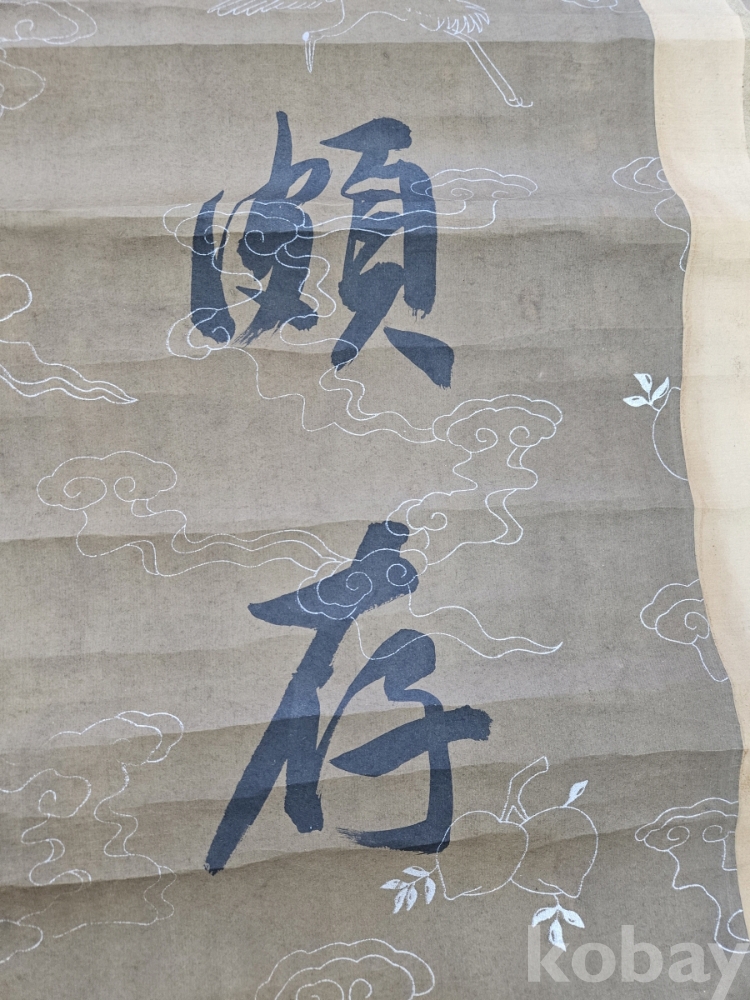 頗
存
kobay